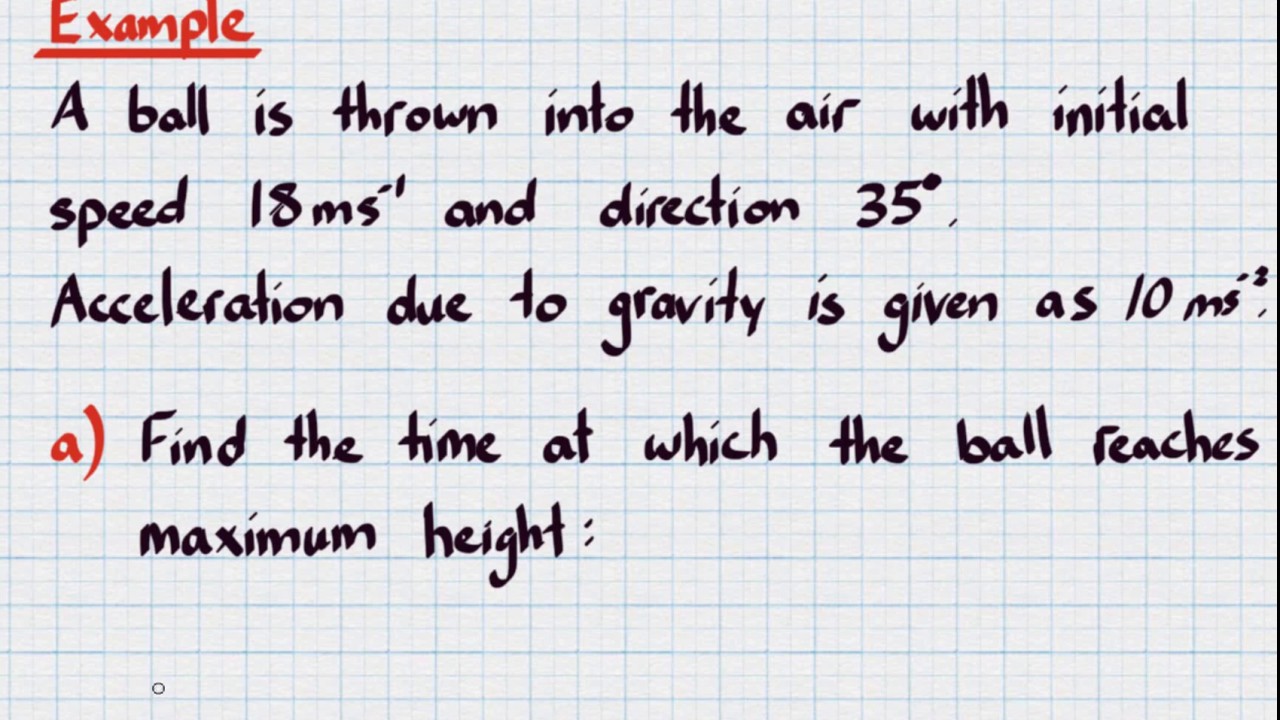 Example
A ball is thrown into the air with initial
speed 18ms⁻¹ and direction 35°.
Acceleration due to gravity is given as 10 ms⁻².
a) Find the time at which the ball reaches
maximum height: